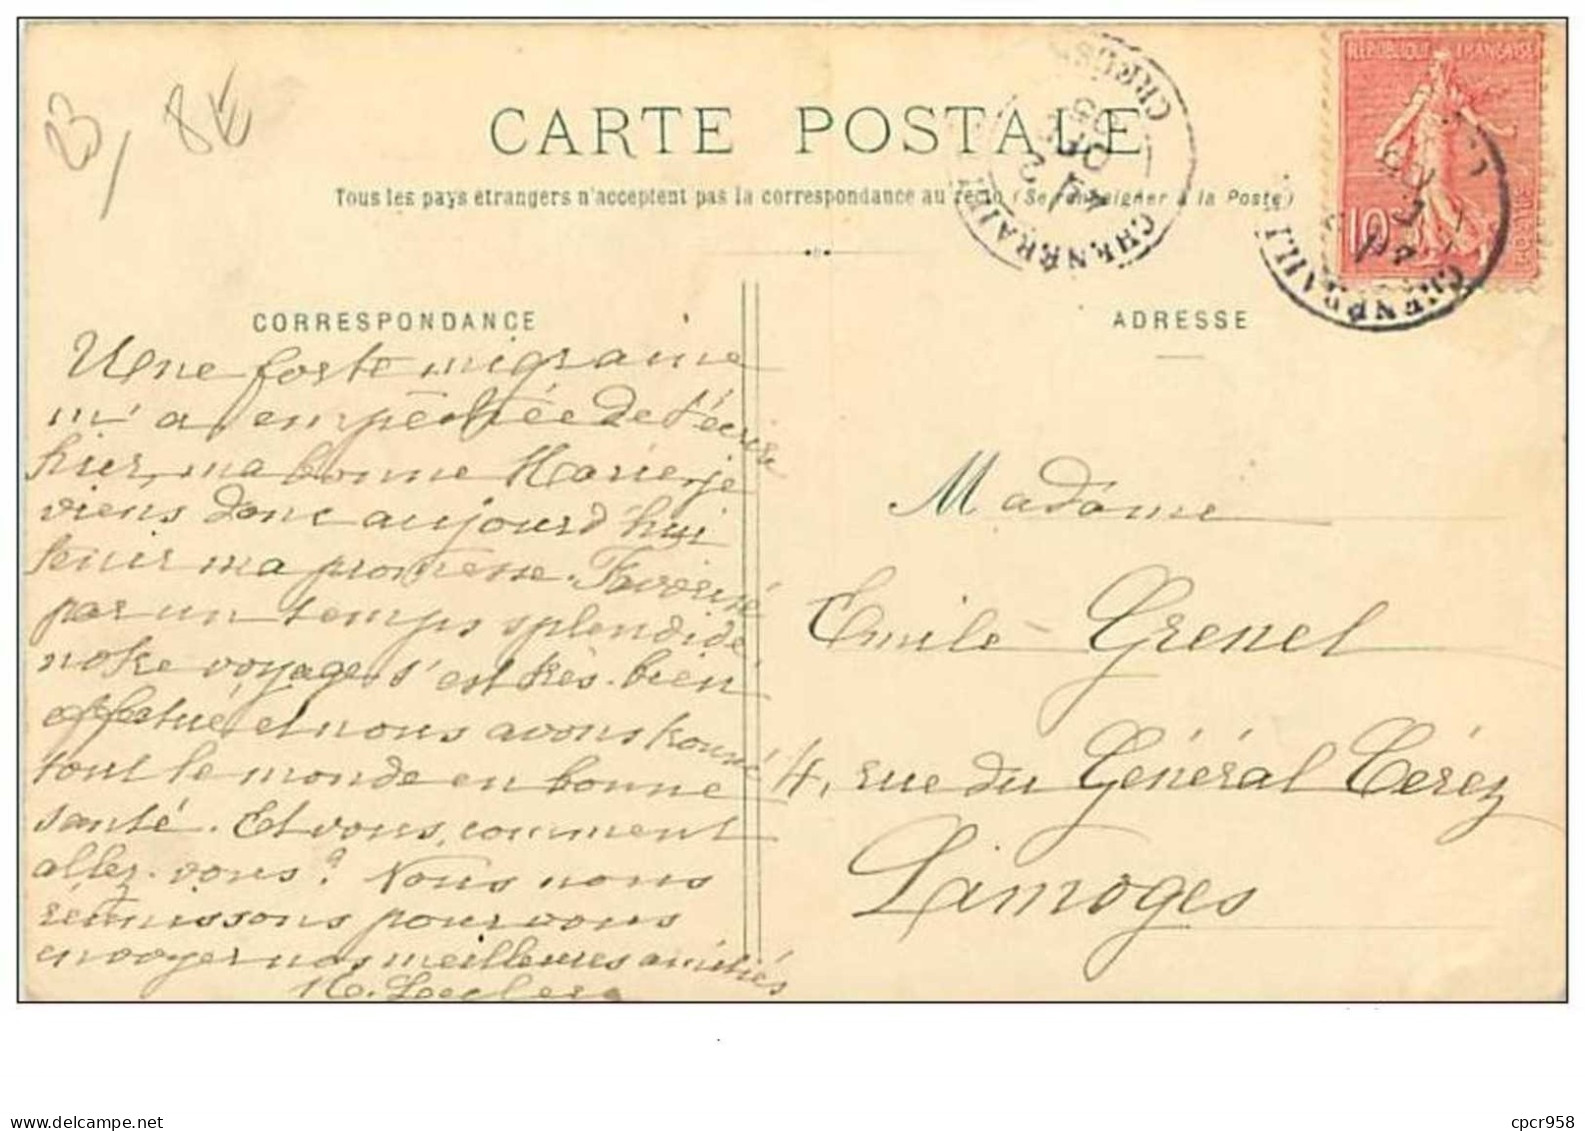 23, 8€
CARTE POSTALE
Tous les pays étrangers n'acceptent pas la correspondance au recto (Se renseigner à la Poste)
CHENERAILLES
CREUSE
REPUBLIQUE FRANÇAISE
10
POSTES
CORRESPONDANCE
Une forte migraine
m'a empêchée de t'écrire
hier, ma bonne Marie, je
viens donc aujourd'hui
tenir ma promesse. Favorisé
par un temps splendide,
notre voyage s'est très bien
effectué, et nous avons trouvé
tout le monde en bonne
santé. Et vous, comment
allez-vous ? Nous nous
réunissons pour vous
envoyer nos meilleures amitiés
M. Leclerc
ADRESSE
Madame
Emile Grenel
4, rue du Général Cérez
Limoges
cpcr958